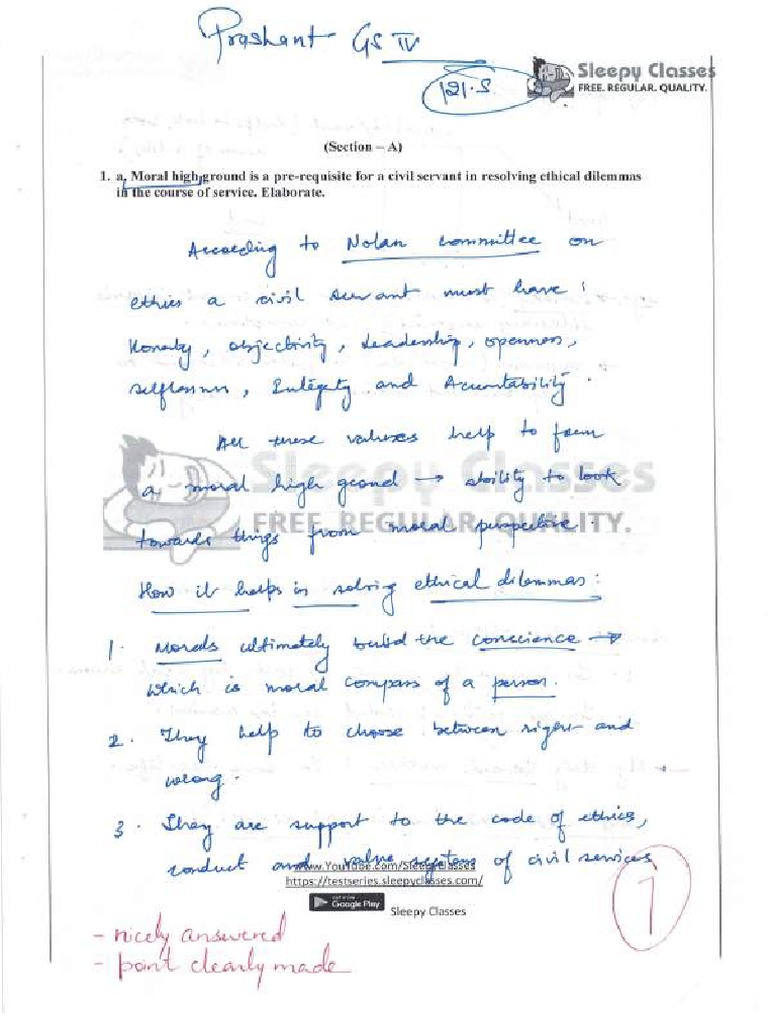 Prashant GS IV
121.5
Sleepy Classes
FREE. REGULAR. QUALITY.
(Section – A)
1. a. Moral high ground is a pre-requisite for a civil servant in resolving ethical dilemmas
in the course of service. Elaborate.
According to Nolan committee on
ethics a civil servant must have :
Honesty, objectivity, Leadership, openness,
selflessness, Integrity and Accountability.
All these values help to form
a moral high ground → ability to look
towards things from moral perspective.
How it helps in solving ethical dilemmas :
1. Morals ultimately build the conscience →
which is moral compass of a person.
2. They help to choose between right and
wrong.
3. They are support to the code of ethics,
conduct and value system of civil services
www.YouTube.com/SleepyClasses
https://testseries.sleepyclasses.com/
Google Play
Sleepy Classes
7
- nicely answered
- point clearly made